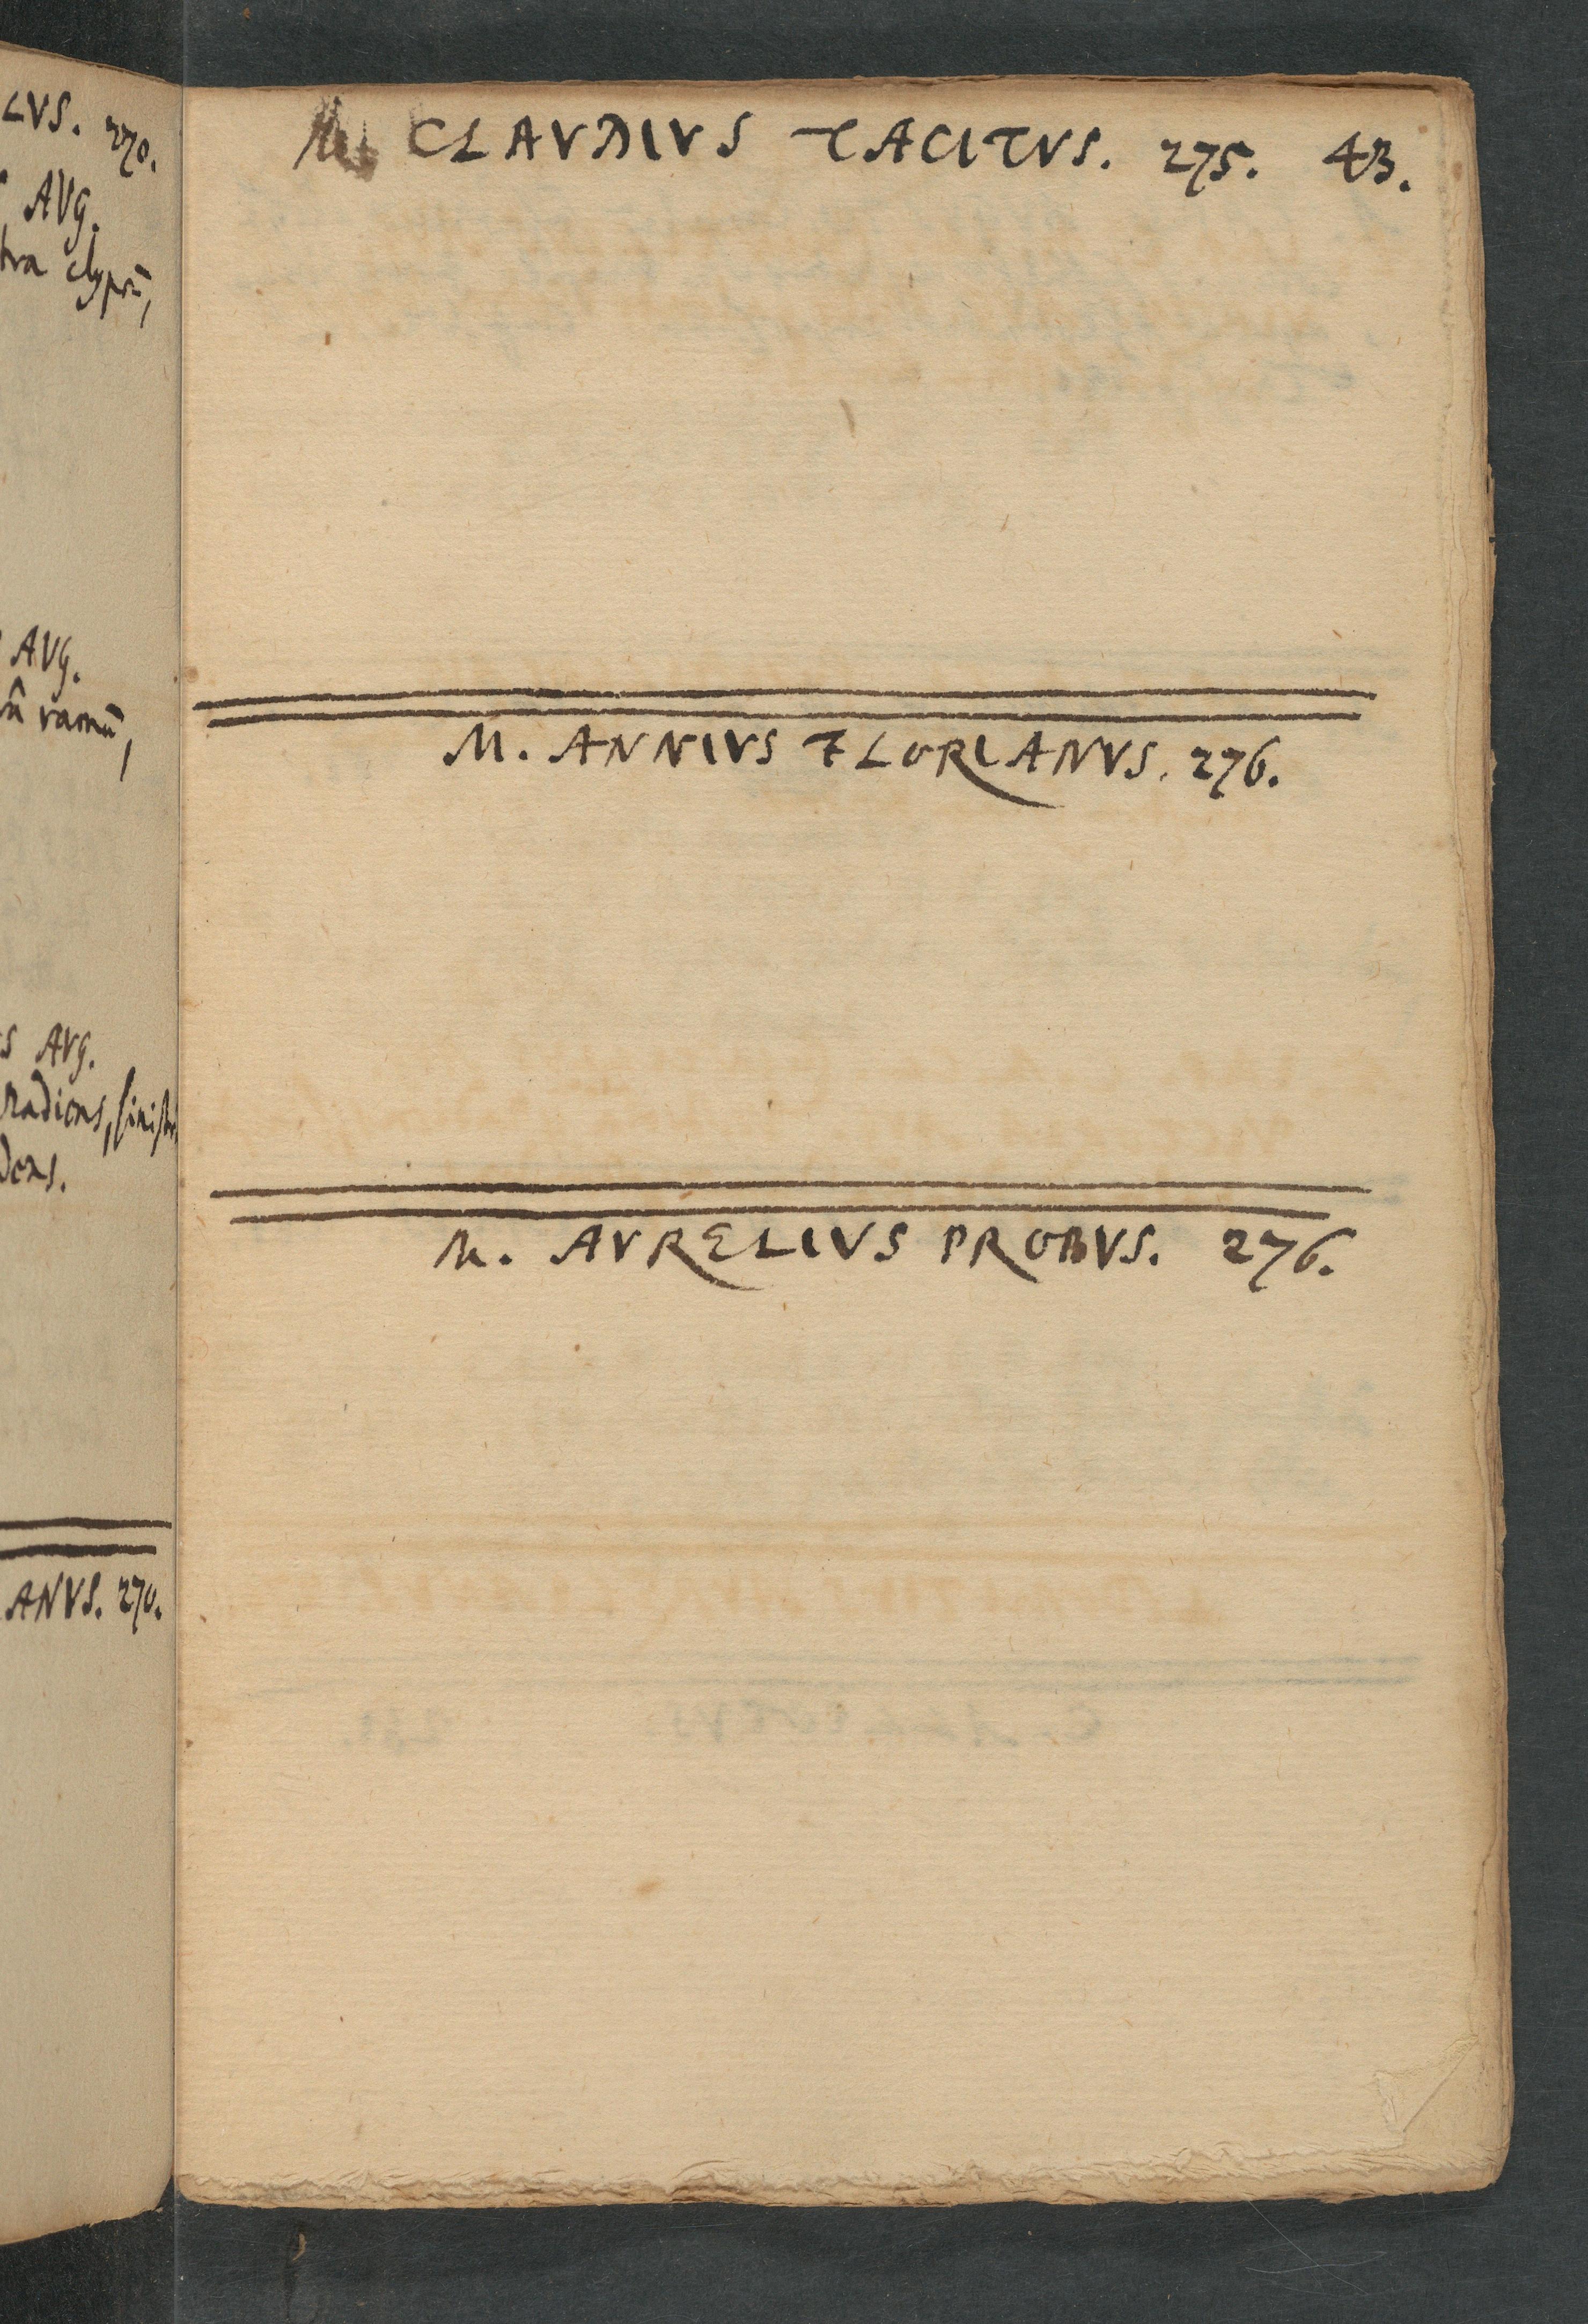 LVS. 270.
AVG.
tra clypeū,
AVG.
ramū,
S AVG.
radiens, sinistr
dens.
ANVS. 270.
M. CLAVDIVS TACITVS. 275. 43.
M. ANNIVS FLORIANVS. 276.
M. AVRELIVS PROBVS. 276.